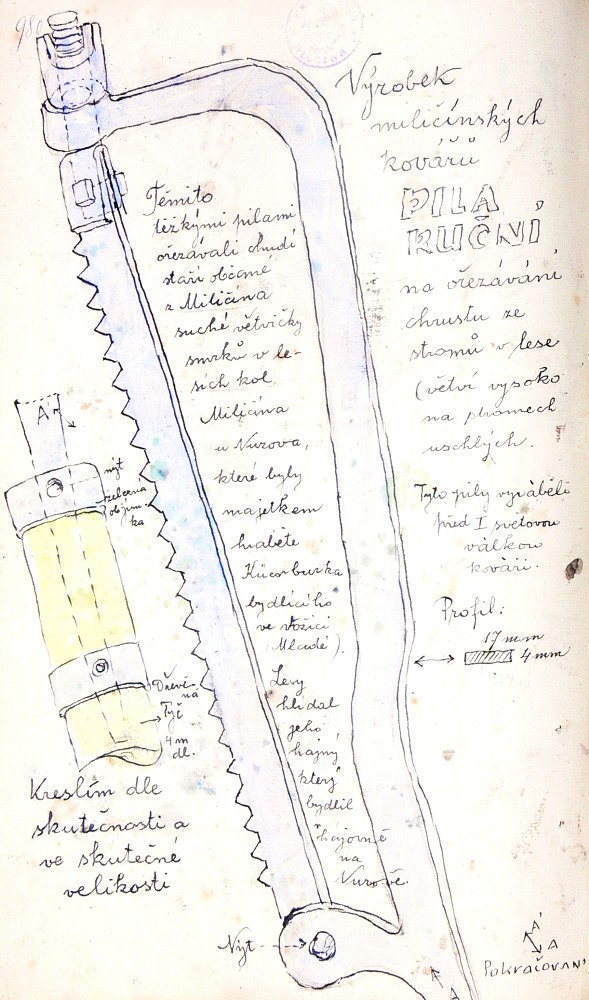 980
Výrobek
miličínských
kovářů
PILA
RUČNÍ
na ořezávání
chrustu ze
stromů v lese
(větví vysoko
na stromech
uschlých.
Tyto pily vyráběli
před I světovou
válkou
kováři.
Profil:
17 mm
4 mm
Těmito
těžkými pilami
ořezávali chudí
staří občané
z Miličína
suché větvičky
smrků v le-
sích kol
Miličína
u Nuzova,
které byly
majetkem
hraběte
bydlícího
ve Vožici
(Mladé).
Lesy
hlídal
jeho
hajný
který
bydlil
v hájovně
na
Nuzově.
A'
nýt
železná
objím-
ka
Dřevě-
ná
Tyč
4 m
dl.
Kreslím dle
skutečnosti a
ve skutečné
velikosti
Nýt
A'
A
Pokračování
A